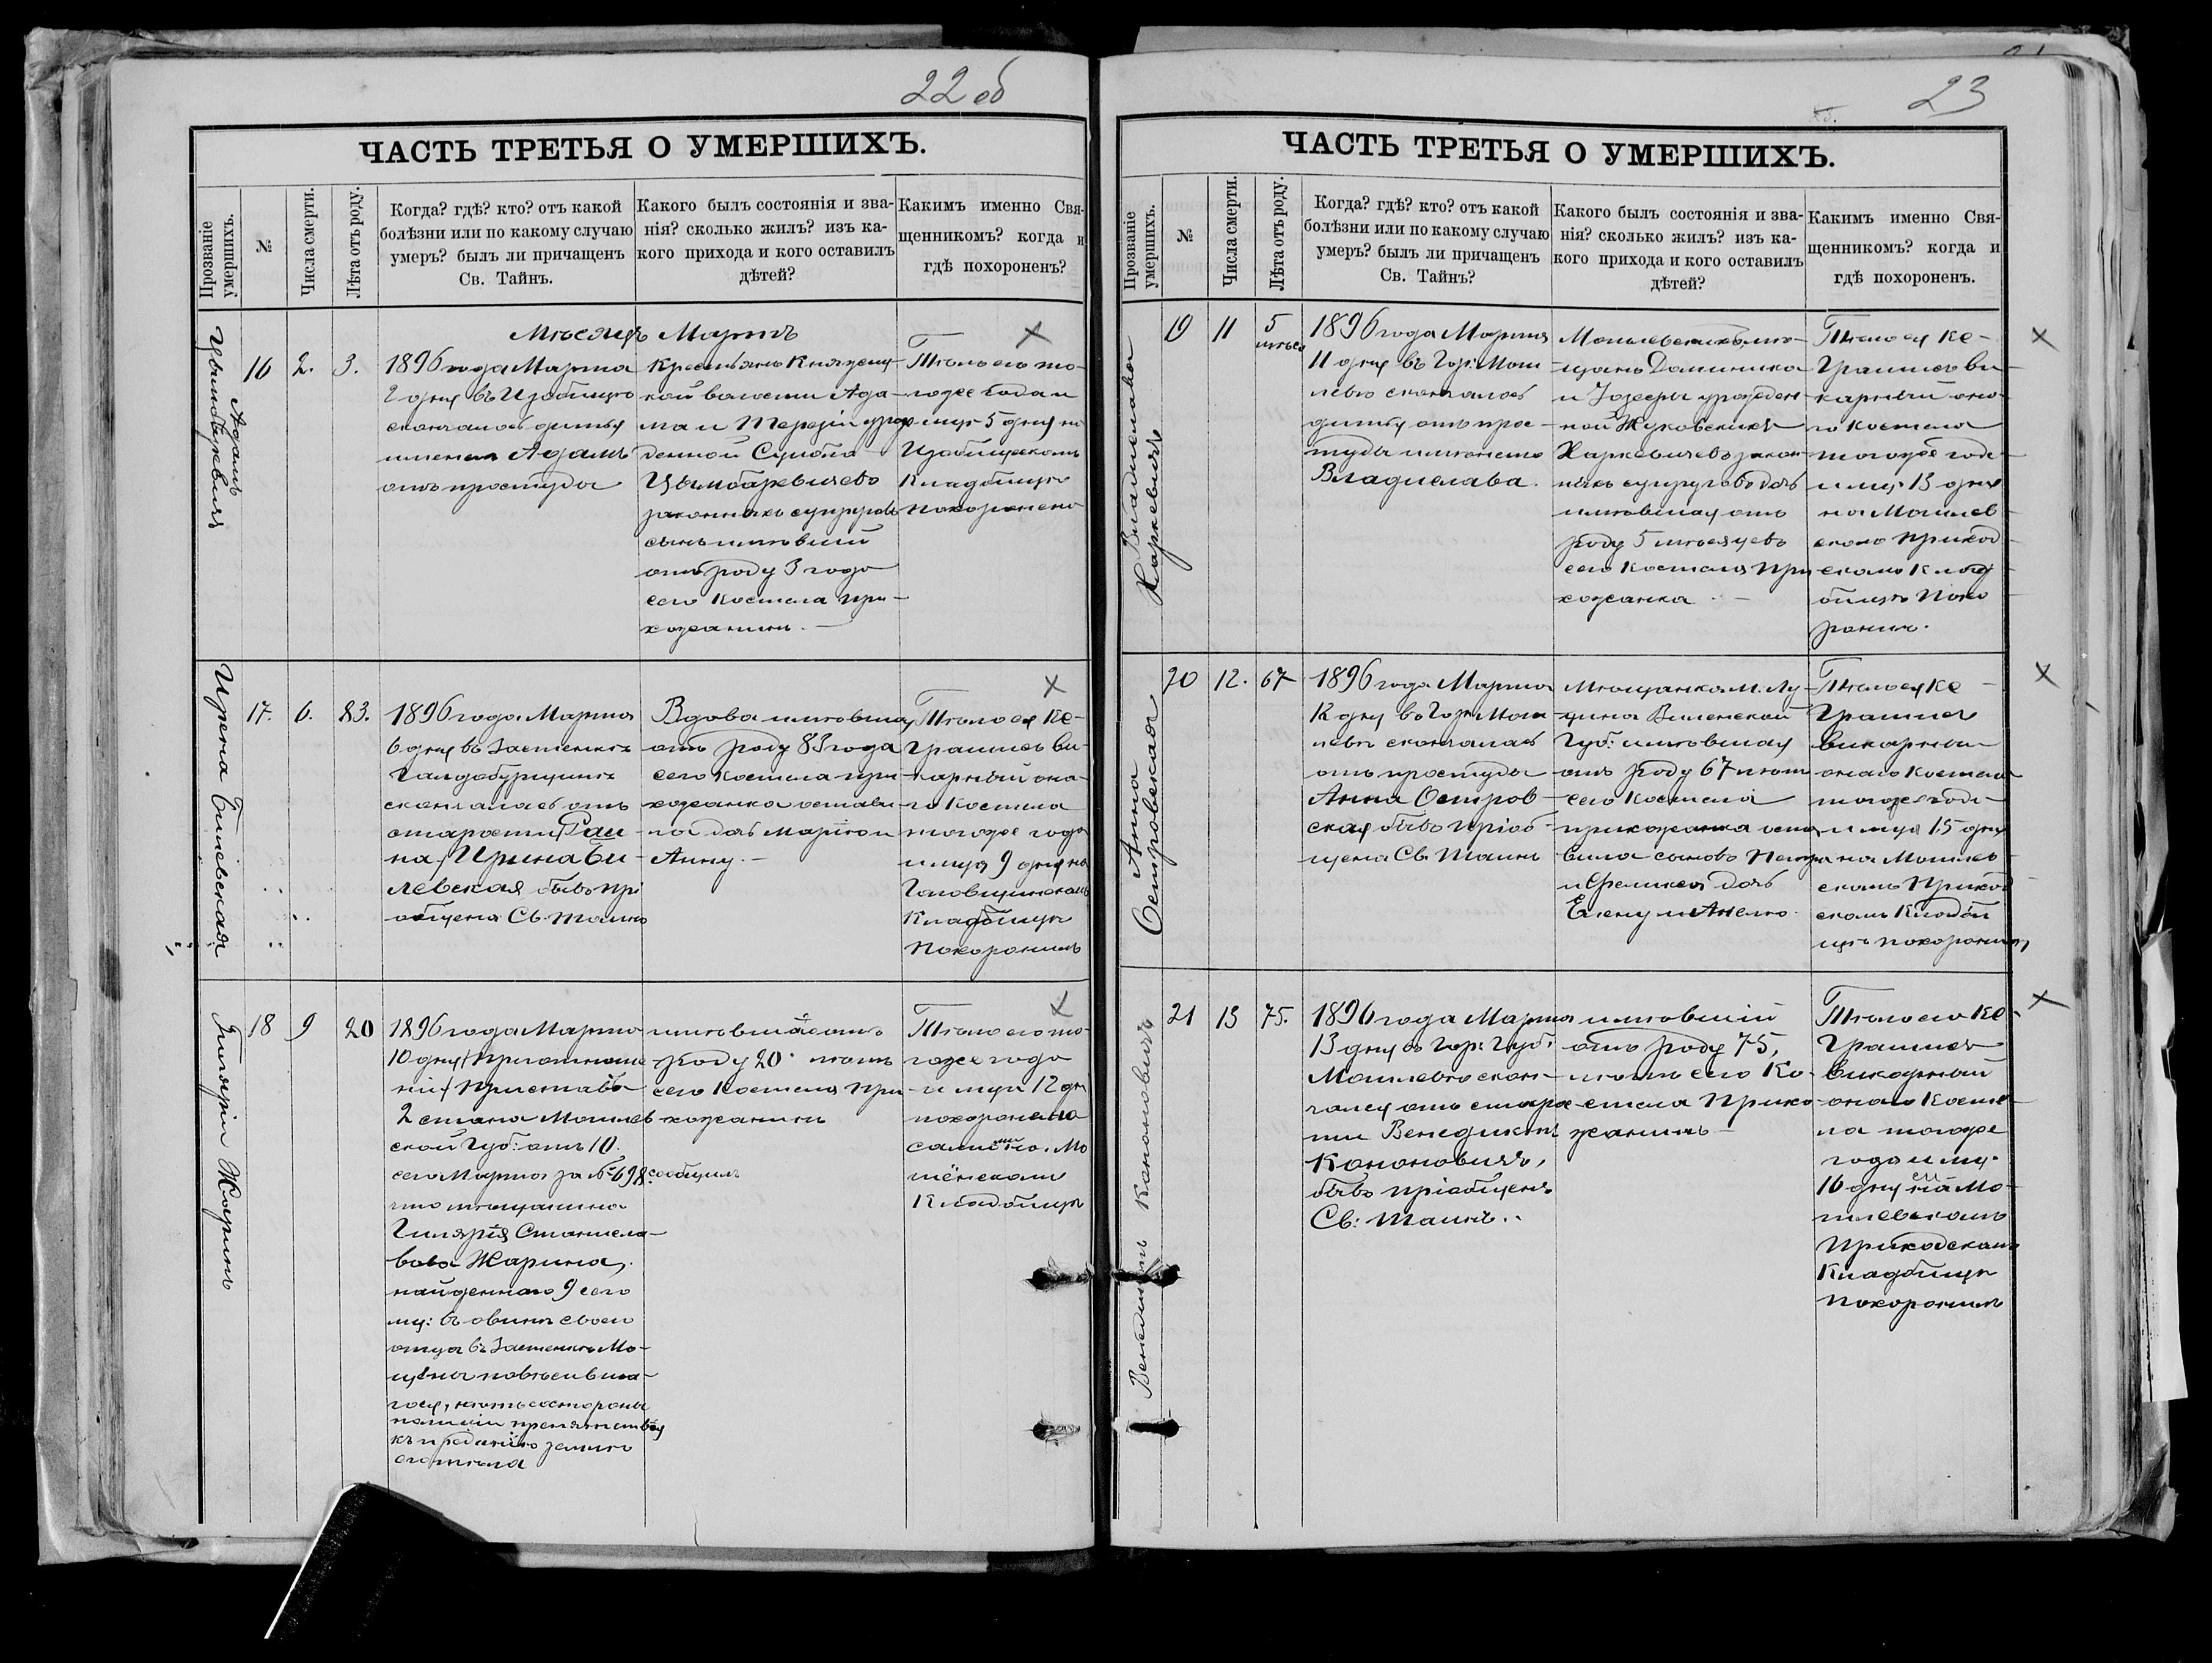 22 об
ЧАСТЬ ТРЕТЬЯ О УМЕРШИХЪ.
Прозваніе умершихъ.
№
Числа смерти.
Лѣта отъ роду.
Когда? гдѣ? кто? отъ какой
болѣзни или по какому случаю
умеръ? былъ ли причащенъ
Св. Тайнъ.
Какого былъ состоянія и зва-
нія? сколько жилъ? изъ ка-
кого прихода и кого оставилъ
дѣтей?
Какимъ именно Свя-
щенникомъ? когда и
гдѣ похороненъ?
Мѣсяцъ Мартъ
Адамъ
Цымбаревичъ
16
2.
3.
1896 года Марта
2 дня въ Изобище
скончалось дитя
именем Адамъ
отъ простуды
Крестьянъ Княжиц-
кой волости Ада-
ма и Терезіи урож
денной Сулобо
Цымбаревичево
законныхъ супруговъ
сынъ имѣвшій
отъ роду 3 года
сего Костела при-
хожанинъ.
Тѣло его то-
гоже года и
мца 5 дня на
Изобищскомъ
Кладбищѣ
похоронено
Ирена Билевская
17.
6.
83.
1896 года Марта
6 дня въ Застенкѣ
скончалась отъ
старости
на/Ирина Би-
левская бывъ прі
общена Св. Таинъ
Вдова имѣвшая
отъ роду 83 года
сего Костела при
хожанка остави-
ла дочь Марію и
Анну.-
Тѣло ея Кс-
Грашисъ ви-
карный она-
го Костела
тогоже года
и мца 9 дня на
Кладбищѣ
похоронилъ
Гиляріи Жаринъ
18
9
20
1896 года Марта
10 дня Приотноше
ніи Приставъ
2 стана Могилев
ской Губ: отъ 10.
сего Марта за № 698 сообщилъ
что мѣщанина
Гилярія Станисла-
вова Жарина,
найденнаго 9 сего
мц: въ овинѣ своего
отца въ Застенкѣ Мо-
щены повѣсивша-
гося, нѣтъ состороны
полиціи препятствія
къ преданію землѣ
его тѣла
имѣвшій отъ
роду 20 лѣтъ
сего Костела При
хожанинъ
Тѣло его то-
гоже года
и мца 12 дня
похоронено
Мо
щёнскомъ
Кладбищѣ
23
ЧАСТЬ ТРЕТЬЯ О УМЕРШИХЪ.
Прозваніе умершихъ.
№
Числа смерти.
Лѣта отъ роду.
Когда? гдѣ? кто? отъ какой
болѣзни или по какому случаю
умеръ? былъ ли причащенъ
Св. Тайнъ?
Какого былъ состоянія и зва-
нія? сколько жилъ? изъ ка-
кого прихода и кого оставилъ
дѣтей?
Какимъ именно Свя-
щенникомъ? когда и
гдѣ похороненъ.
Владислава
Харкевичъ
19
11
5
мѣсяц
1896 года Марта
11 дня въ Гор: Моги
левѣ скончалось
дитя отъ прос-
туды именемъ
Владислава.
Могилевскихъ мѣ-
щанъ Доминика
и Іозефы урожден
ной Жуковскихъ
Харкевичевъ закон-
ныхъ супруговъ дочь
имѣвшая отъ
роду 5 мѣсяцевъ
сего Костела При
хожанка. -
Тѣло ея Кс-
Грашисъ ви-
карный она-
го Костела
тогоже года
и мц: 13 дня
на Могилев
скомъ Приход-
скомъ Клад
бищѣ Похо
ронилъ.
Анна
Островская
20
12.
67
1896 года Марта
12 дня въ Гор: Моги
левѣ скончалась
отъ простуды
Анна Остров-
ская бывъ пріоб-
щена Св. Таинъ
Мѣщанка М. Лу-
жина Виленской
Губ: имѣвшая
отъ роду 67 лѣтъ
сего Костела
прихожанка оста
вила сыновъ Петра
и Феликса дочь
Елену и Анелю.
Тѣло ея Кс-
Грашисъ
Викарный
онаго Костела
тогоже года
и мца 15 дня
на Могилев-
скомъ Приход
скомъ Кладби
щѣ похоронилъ
Венедиктъ Конoновичъ
21
13
75.
1896 года Марта
13 дня въ Гор: Губ:
Могилевѣ скон-
чался отъ старос
ти Венедиктъ
Конoновичъ,
бывъ пріобщенъ
Св: Таинъ..
имѣвшій
отъ роду 75,
лѣтъ сего Ко-
стела Прихо-
жанинъ -
Тѣло его Кс-
Грашисъ
Викарный
онаго Косте-
ла тогоже
года и мц.
16 дня на Мо-
гилевскомъ
Приходскомъ
Кладбищѣ
похоронилъ